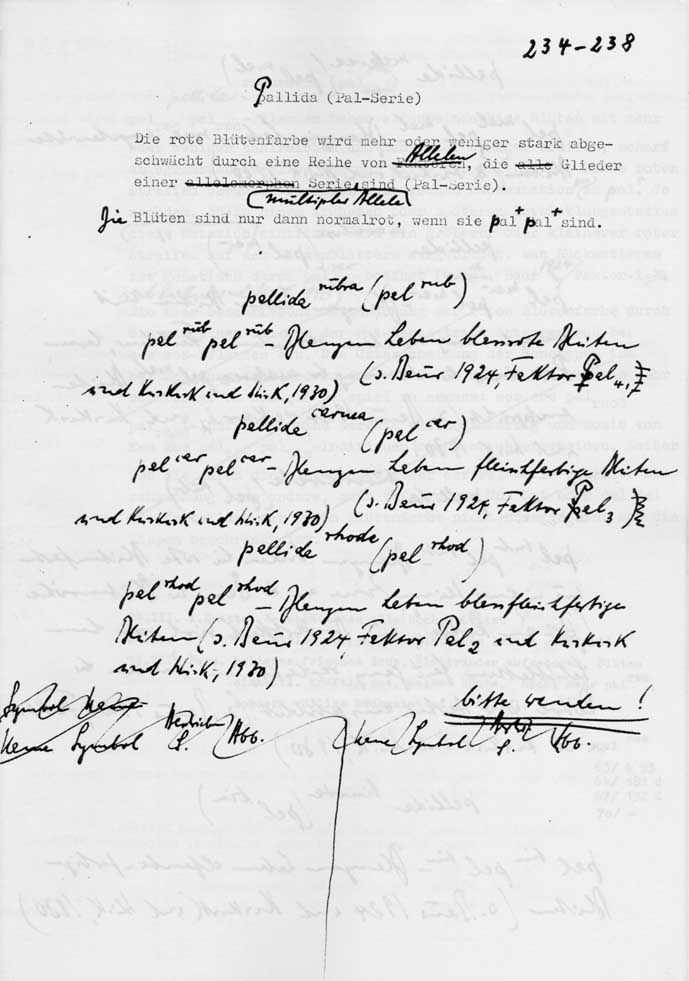 234-238
Pallida (Pal-Serie)
Die rote Blütenfarbe wird mehr oder weniger stark abge-
schwächt durch eine Reihe von Allelen, die Glieder
einer Serie multipler Allele sind (Pal-Serie).
Die Blüten sind nur dann normalrot, wenn sie pal⁺pal⁺ sind.
pallida rubra (pal rub)
pal rub pal rub - Pflanzen haben blassrote Blüten
(s. Baur 1924, Faktor Pal₄,
und Kuckuck und Schick, 1930)
pallida carnea (pal car)
pal car pal car - Pflanzen haben fleischfarbige Blüten
(s. Baur 1924, Faktor Pal₃)
und Kuckuck und Schick, 1930)
pallida rhode (pal rhod)
pal rhod pal rhod - Pflanzen haben blassfleischfarbige
Blüten (s. Baur 1924, Faktor Pal₂ und Kuckuck
und Schick, 1930)
bitte wenden!
Symbol
Symbol S. Abb.
Symbol S. Abb.